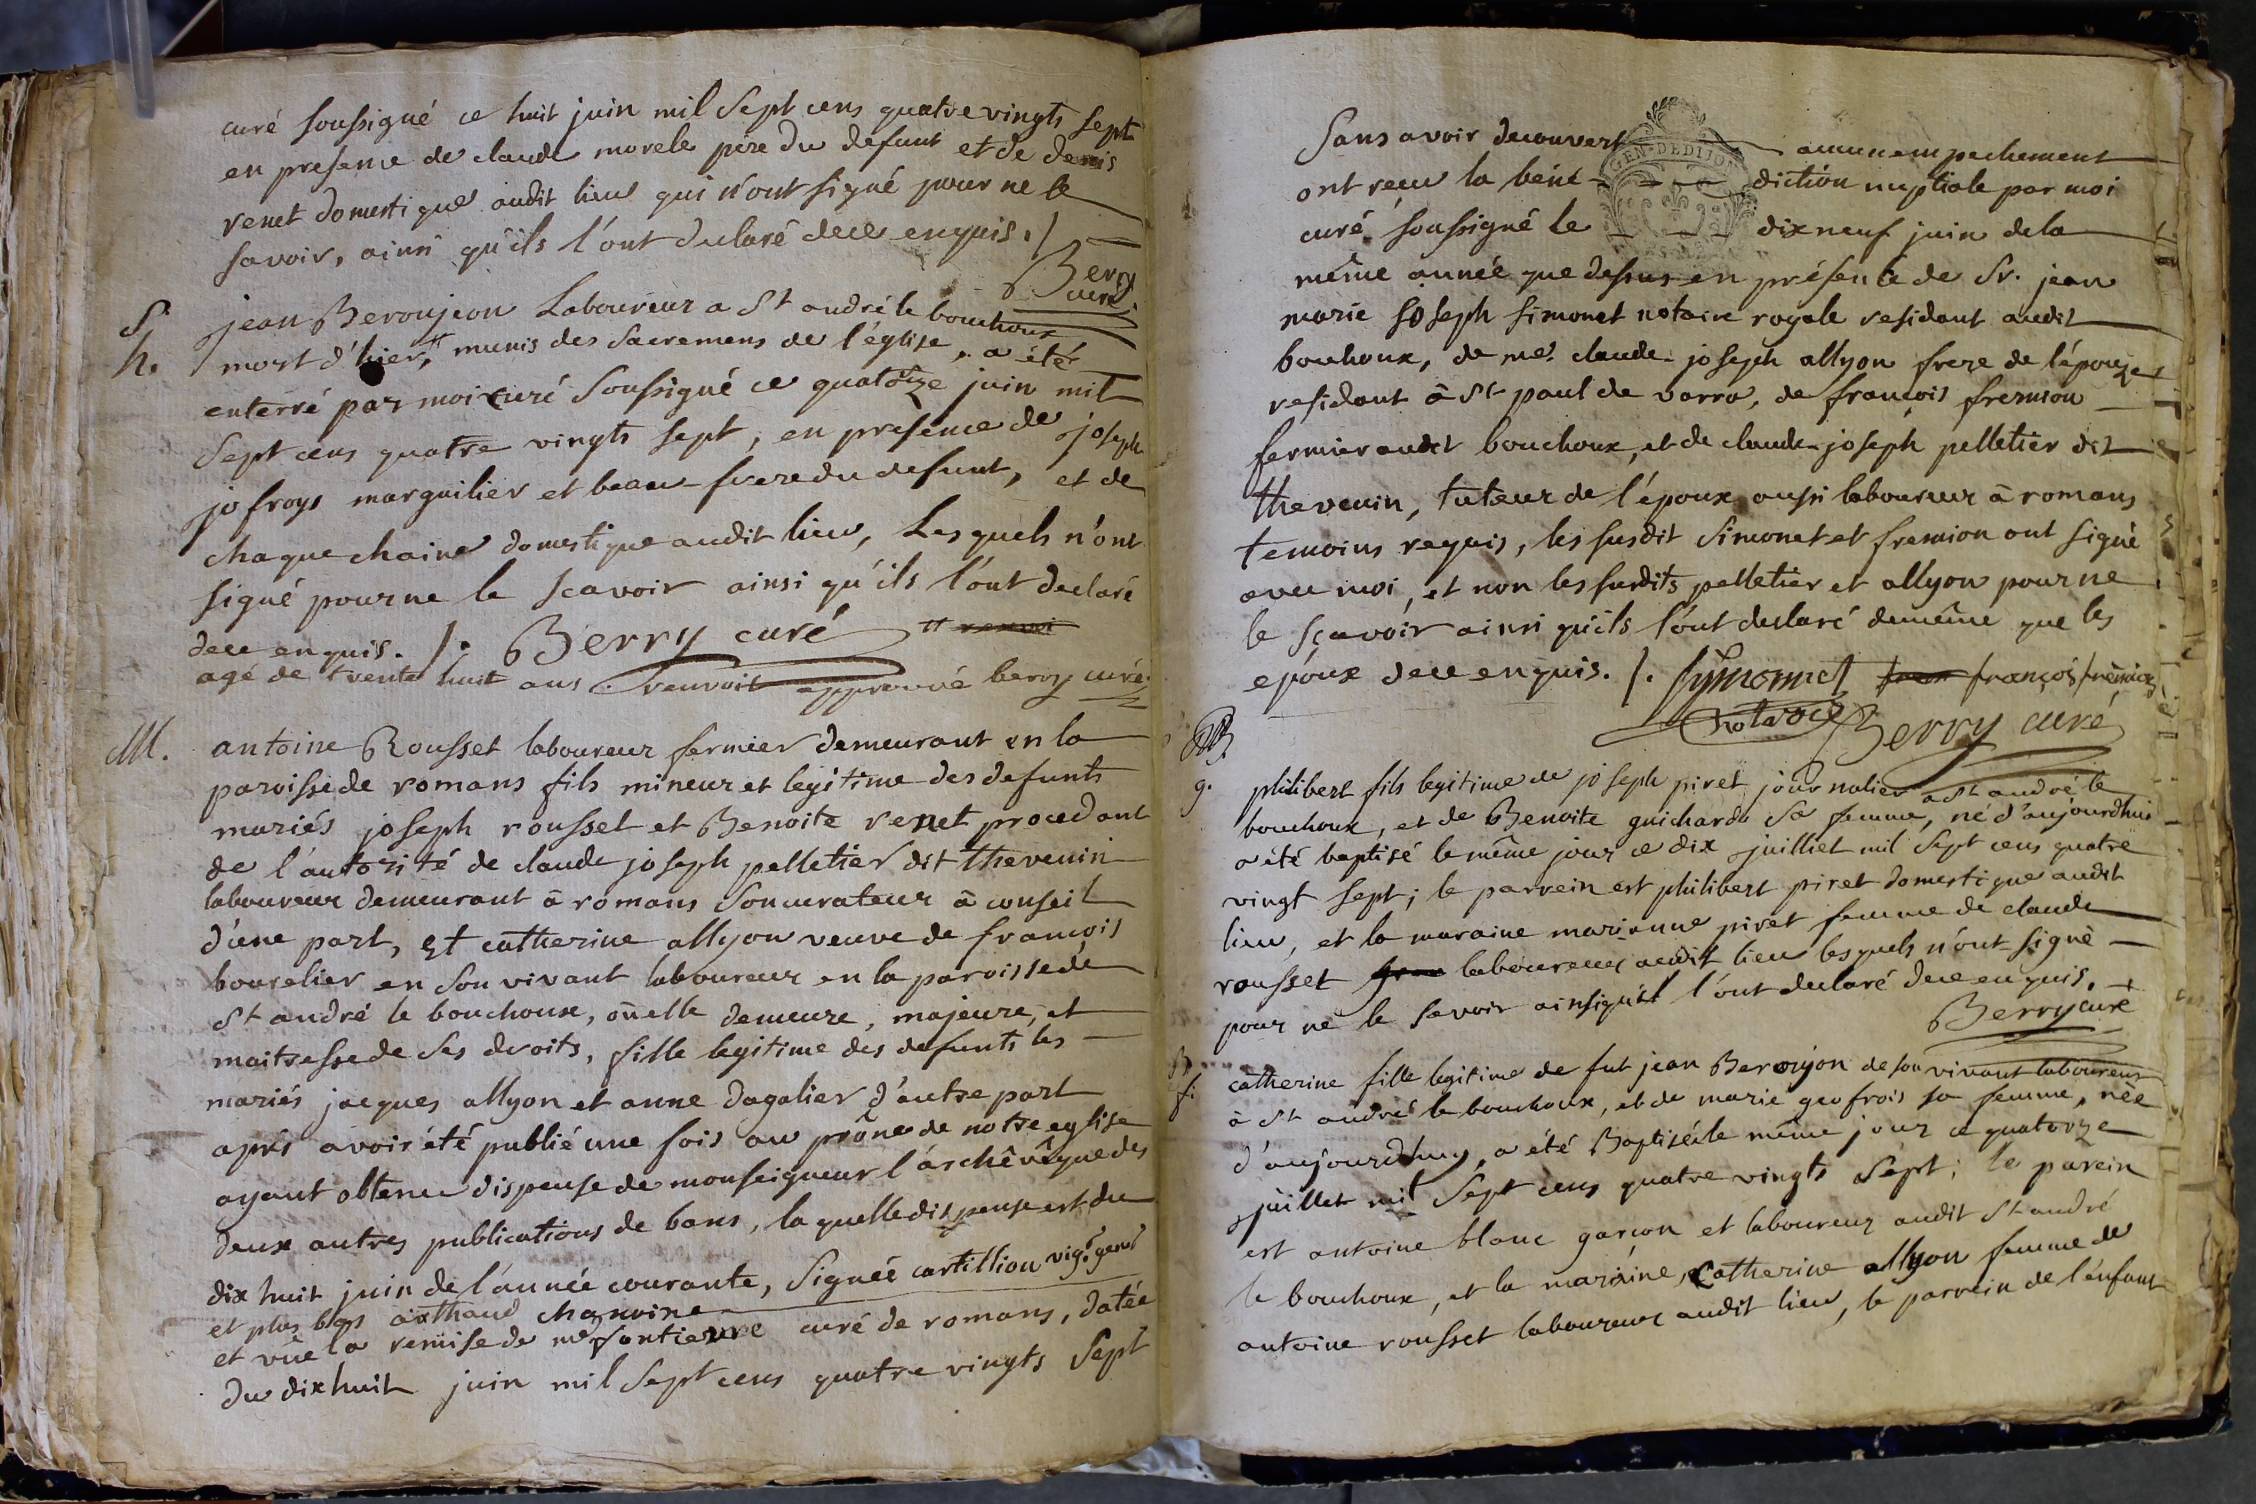 curé soussigné ce huit juin mil sept cens quatre vingts sept
en presence de claude morele père du defunt et de denis
venet domestique audit lieu qui n'ont signé pour ne le
savoir, ainsi qu'ils l'ont declaré de ce enquis ./
Berry
curé.
S.
h.
jean Beroujeon Laboureur a St andré le bouchoux
mort d'hier, # munis des sacremens de l'église, a été
enterré par moi curé soussigné ce quatorze juin mil
sept cens quatre vingts sept, en presence de joseph
jofroys marguilier et beau-frere du defunt, et de
chaque chaine domestique audit lieu, Lesquels n'ont
signé pour ne le scavoir ainsi qu'ils l'ont declaré
de ce enquis. /. Berry curé # renvoi
agé de trente huit ans. renvoit approuvé berry curé
M.
antoine Rousset laboureur fermier demeurant en la
paroisse de romans fils mineur et legitime des defunts
mariés joseph rousset et Benoite venet procedant
de l'autorité de claude joseph pelletier dit thevenin
laboureur demeurant à romans son curateur à conseil
d'une part, Et catherine allyon veuve de françois
bourelier en son vivant laboureur en la paroisse de
St andré le bouchoux, où elle demeure, majeure, et
maitresse de ses droits, fille legitime des defunts les
mariés jacques allyon et anne dagalier d'autre part
après avoir été publié une fois au prône de notre eglise
ayant obtenu dispense de monseigneur l'archêvêque des
deux autres publications de bans, la quelle dispense est du
dix huit juin de l'année courante, Signée cortillion vig. genl
et plus bas arthaud chanoine
et vûe la remise de me curé de romans, datée
du dix huit juin mil sept cens quatre vingts sept
Sans avoir decouvert aucun empechement
GEN. DE DIJON
ont reçu la béné- diction nuptiale par moi
curé soussigné le dix neuf juin de la
même année que dessus en présence de Sr. jean
marie joseph simonet notaire royale residant audit
bouchoux, de me. claude-joseph allyon frere de l'épouze
residant à St paul de varra, de françois fremion
fermier audit bouchoux, et de claude-joseph pelletier dit
thevenin, tuteur de l'époux aussi laboureur à romans
temoins requis, les susdit Simonet et fremion ont signé
avec moi, et non les susdits pelletier et allyon pour ne
le sçavoir ainsi qu'ils l'ont declaré de même que les
epoux de ce enquis. /. Symonnet françois fremion
notaire Berry curé
B.
g.
philibert fils legitime de joseph piret journalier a St andré le
bouchoux, et de Benoite guicharde sa femme, né d'aujourdhui
a été baptisé le même jour ce dix juilliet mil sept cens quatre
vingt sept; le parrein est philibert piret domestique audit
lieu, et la maraine marianne piret femme de claude
rousset laboureur audit lieu lesquels n'ont signé
pour ne le savoir ainsi qu'il l'ont declaré de ce enquis.
Berry curé
B
f.
catherine fille legitime de fut jean Beroujon de son vivant laboureur
à St andré le bouchoux, et de marie geofrois sa femme, née
d'aujourdhuy, a été Baptisée le même jour ce quatorze
juillet mil sept cens quatre vingts sept; le parein
est antoine blanc garçon et laboureur audit St andré
le bouchoux, et la maraine, Catherine allyon femme de
antoine rousset laboureur audit lieu, le parrein de l'enfant